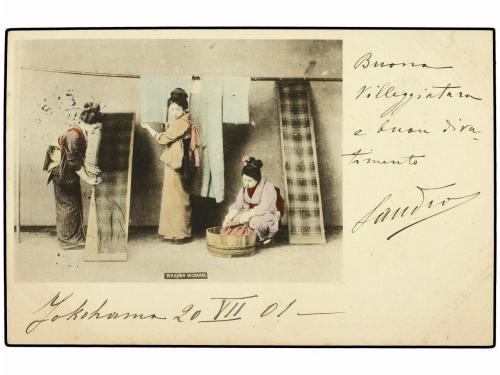 Buona
Villeggiatura
e buon diva-
timento
Sandro
WASHER WOMAN
Yokohama 20 VII 01 —